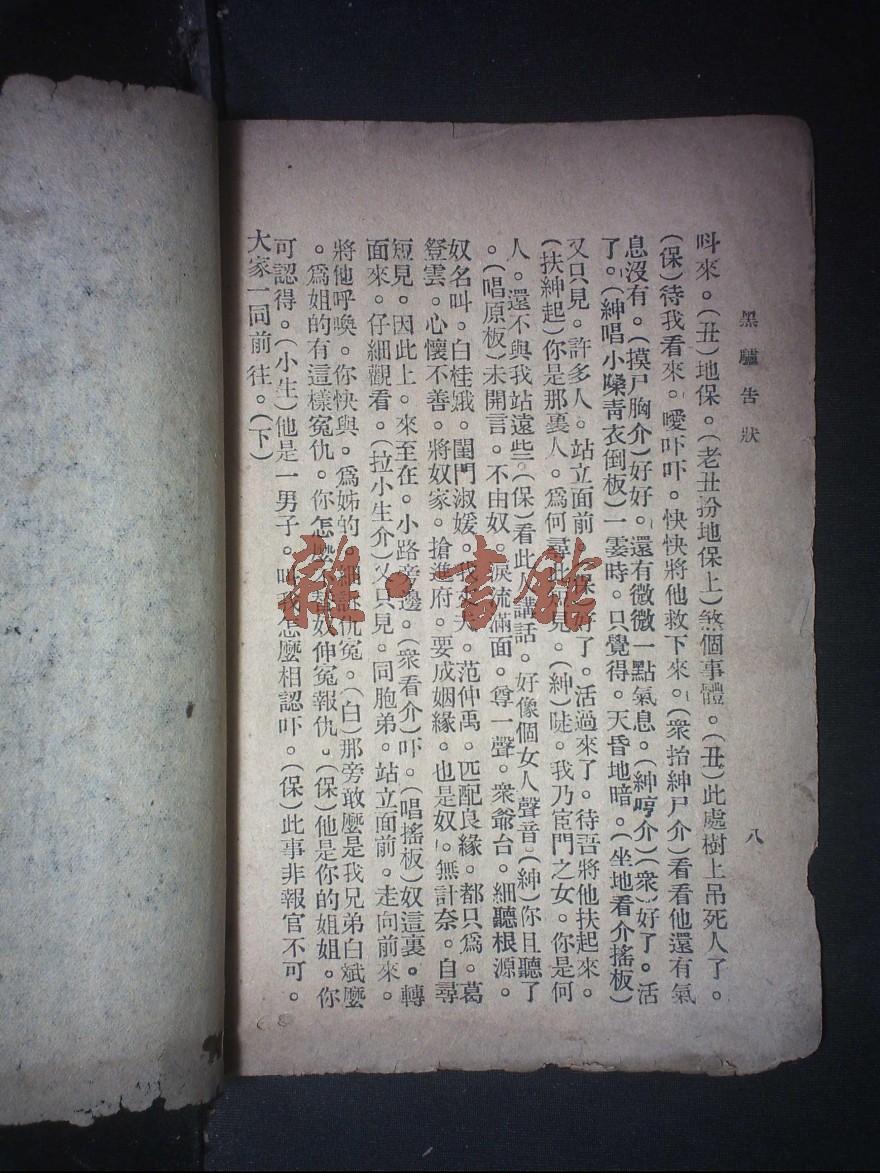 黑驢告狀
八
呌來。(丑)地保。(老丑扮地保上)煞個事體。(丑)此處樹上吊死人了。
(保)待我看來。噯吓吓。快快將他救下來。(衆抬紳尸介)看看他還有氣
息沒有。(摸尸胸介)好好。還有微微一點氣息。(紳哼介)(衆)好了。活
了。(紳唱小嗓靑衣倒板)一霎時。只覺得。天昏地暗。(坐地看介搖板)
又只見。許多人。站立面前。(保)好了。活過來了。待吾將他扶起來。
(扶紳起)你是那裏人。爲何尋此短見。(紳)陡。我乃宦門之女。你是何
人。還不與我站遠些。(保)看此人講話。好像個女人聲音。(紳)你且聽了
。(唱原板)未開言。不由奴。淚流滿面。尊一聲。衆爺台。細聽根源。
奴名叫。白桂娥。閨門淑媛。我丈夫。范仲禹。匹配良緣。都只爲。葛
登雲。心懷不善。將奴家。搶進府。要成姻緣。也是奴。無計奈。自尋
短見。因此上。來至在。小路旁邊。(衆看介)吓。(唱搖板)奴這裏。轉
面來。仔細觀看。(拉小生介)又只見。同胞弟。站立面前。走向前來。
將他呼喚。你快與。爲姊的。細訴仇冤。(白)那旁敢麽是我兄弟白斌麽
。爲姐的有這樣冤仇。你怎麽不替奴伸冤報仇。(保)他是你的姐姐。你
可認得。(小生)他是一男子。叫我怎麽相認吓。(保)此事非報官不可。
大家一同前往。(下)
雜·書館